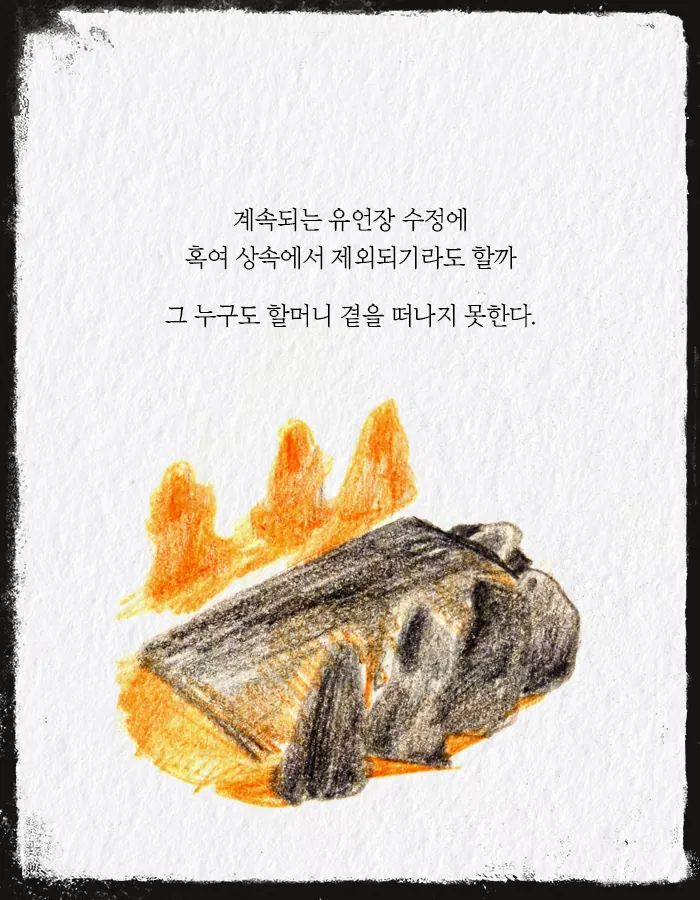 계속되는 유언장 수정에
혹여 상속에서 제외되기라도 할까
그 누구도 할머니 곁을 떠나지 못한다.